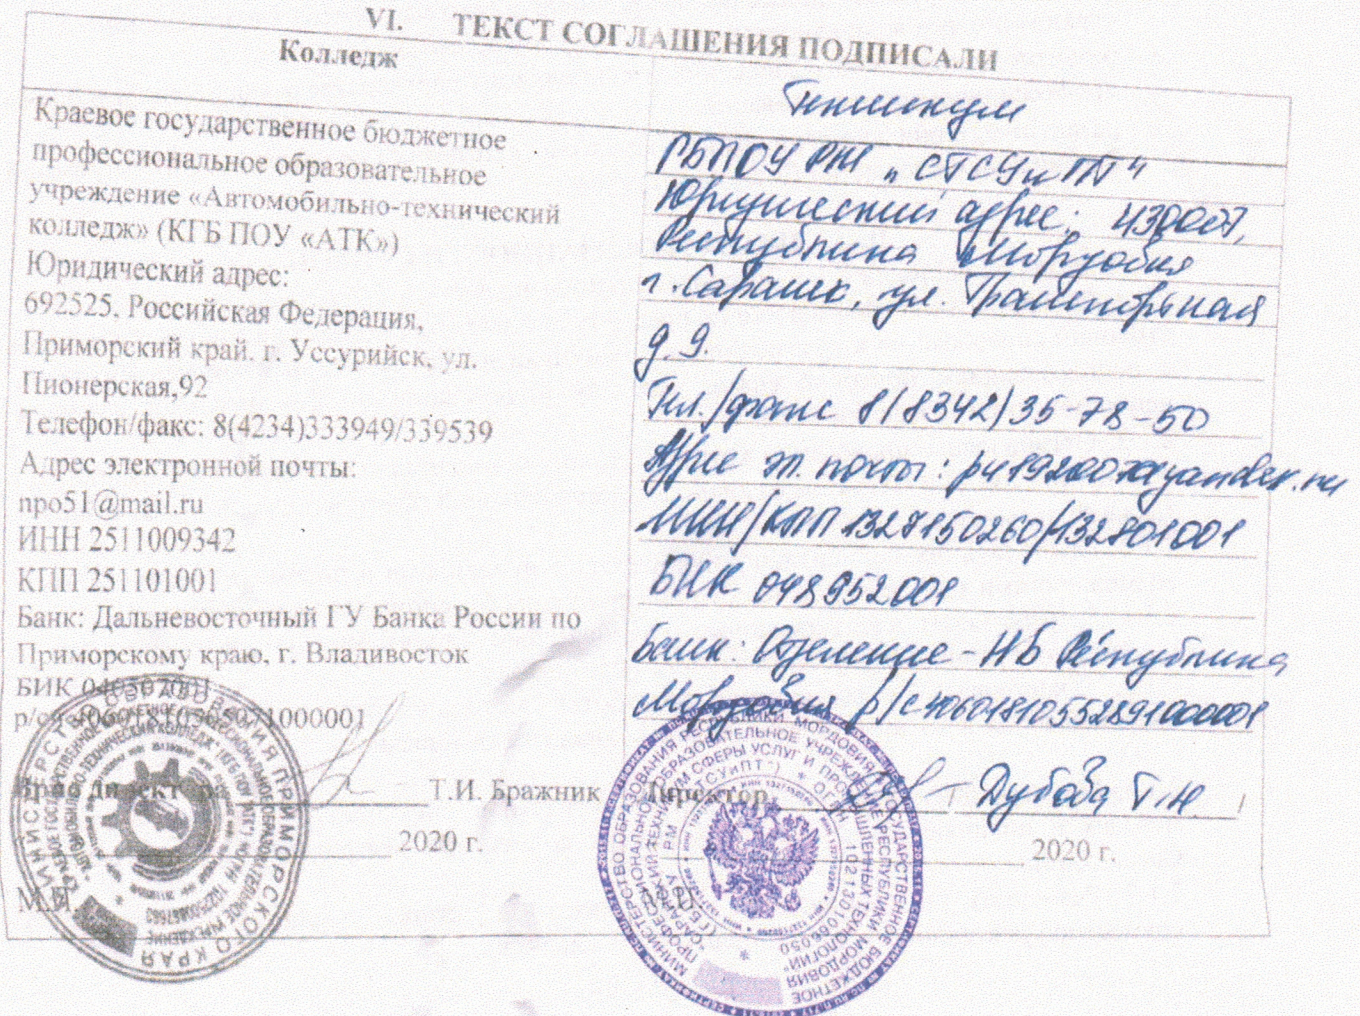 VI. ТЕКСТ СОГЛАШЕНИЯ ПОДПИСАЛИ
Колледж
Краевое государственное бюджетное
профессиональное образовательное
учреждение «Автомобильно-технический
колледж» (КГБ ПОУ «АТК»)
Юридический адрес:
692525, Российская Федерация,
Приморский край, г. Уссурийск, ул.
Пионерская,92
Телефон/факс: 8(4234)333949/339539
Адрес электронной почты:
npo51@mail.ru
ИНН 2511009342
КПП 251101001
Банк: Дальневосточный ГУ Банка России по
Приморскому краю, г. Владивосток
БИК 040507001
р/сч 40601810505071000001
Врио директора Т.И. Бражник
2020 г.
М.П
Техникум
ГБПОУ РМ „СТСУиПТ"
Юридический адрес: 430007,
Республика Мордовия
г. Саранск, ул. Транспортная
д. 9.
Тел./факс 8(8342)35-78-50
Адрес эл. почты:
ИНН/КПП 1327150260/132801001
БИК 048952001
Банк: Отделение-НБ Республика
Мордовия р/с 40601810552891000001
Директор Дубова Т.Н.
2020 г.
М.П.
МИНИСТЕРСТВО ОБРАЗОВАНИЯ ПРИМОРСКОГО КРАЯ
МИНИСТЕРСТВО ОБРАЗОВАНИЯ РЕСПУБЛИКИ МОРДОВИЯ